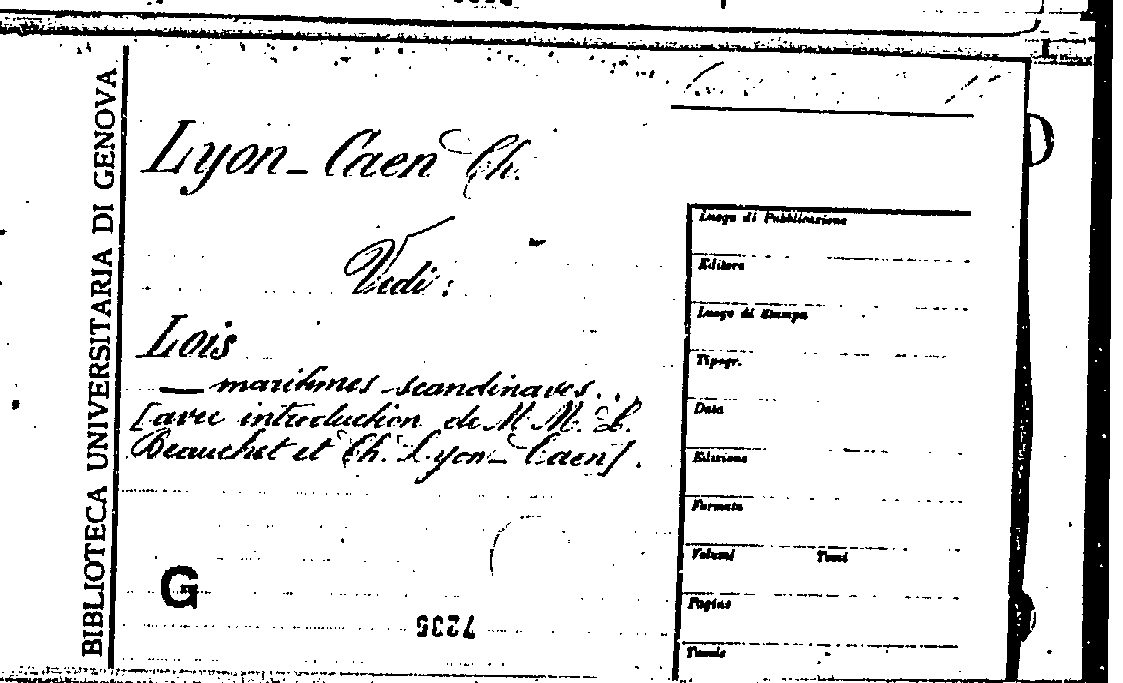 BIBLIOTECA UNIVERSITARIA DI GENOVA
Lyon-Caen Ch.
Vedi:
Lois
— maritimes scandinaves...
[avec introduction de M. M. L.
Beauchet et Ch. Lyon-Caen].
G
7235
Luogo di Pubblicazione
Editore
Luogo di Stampa
Tipogr.
Data
Edizione
Formato
Volumi Tomi
Pagine